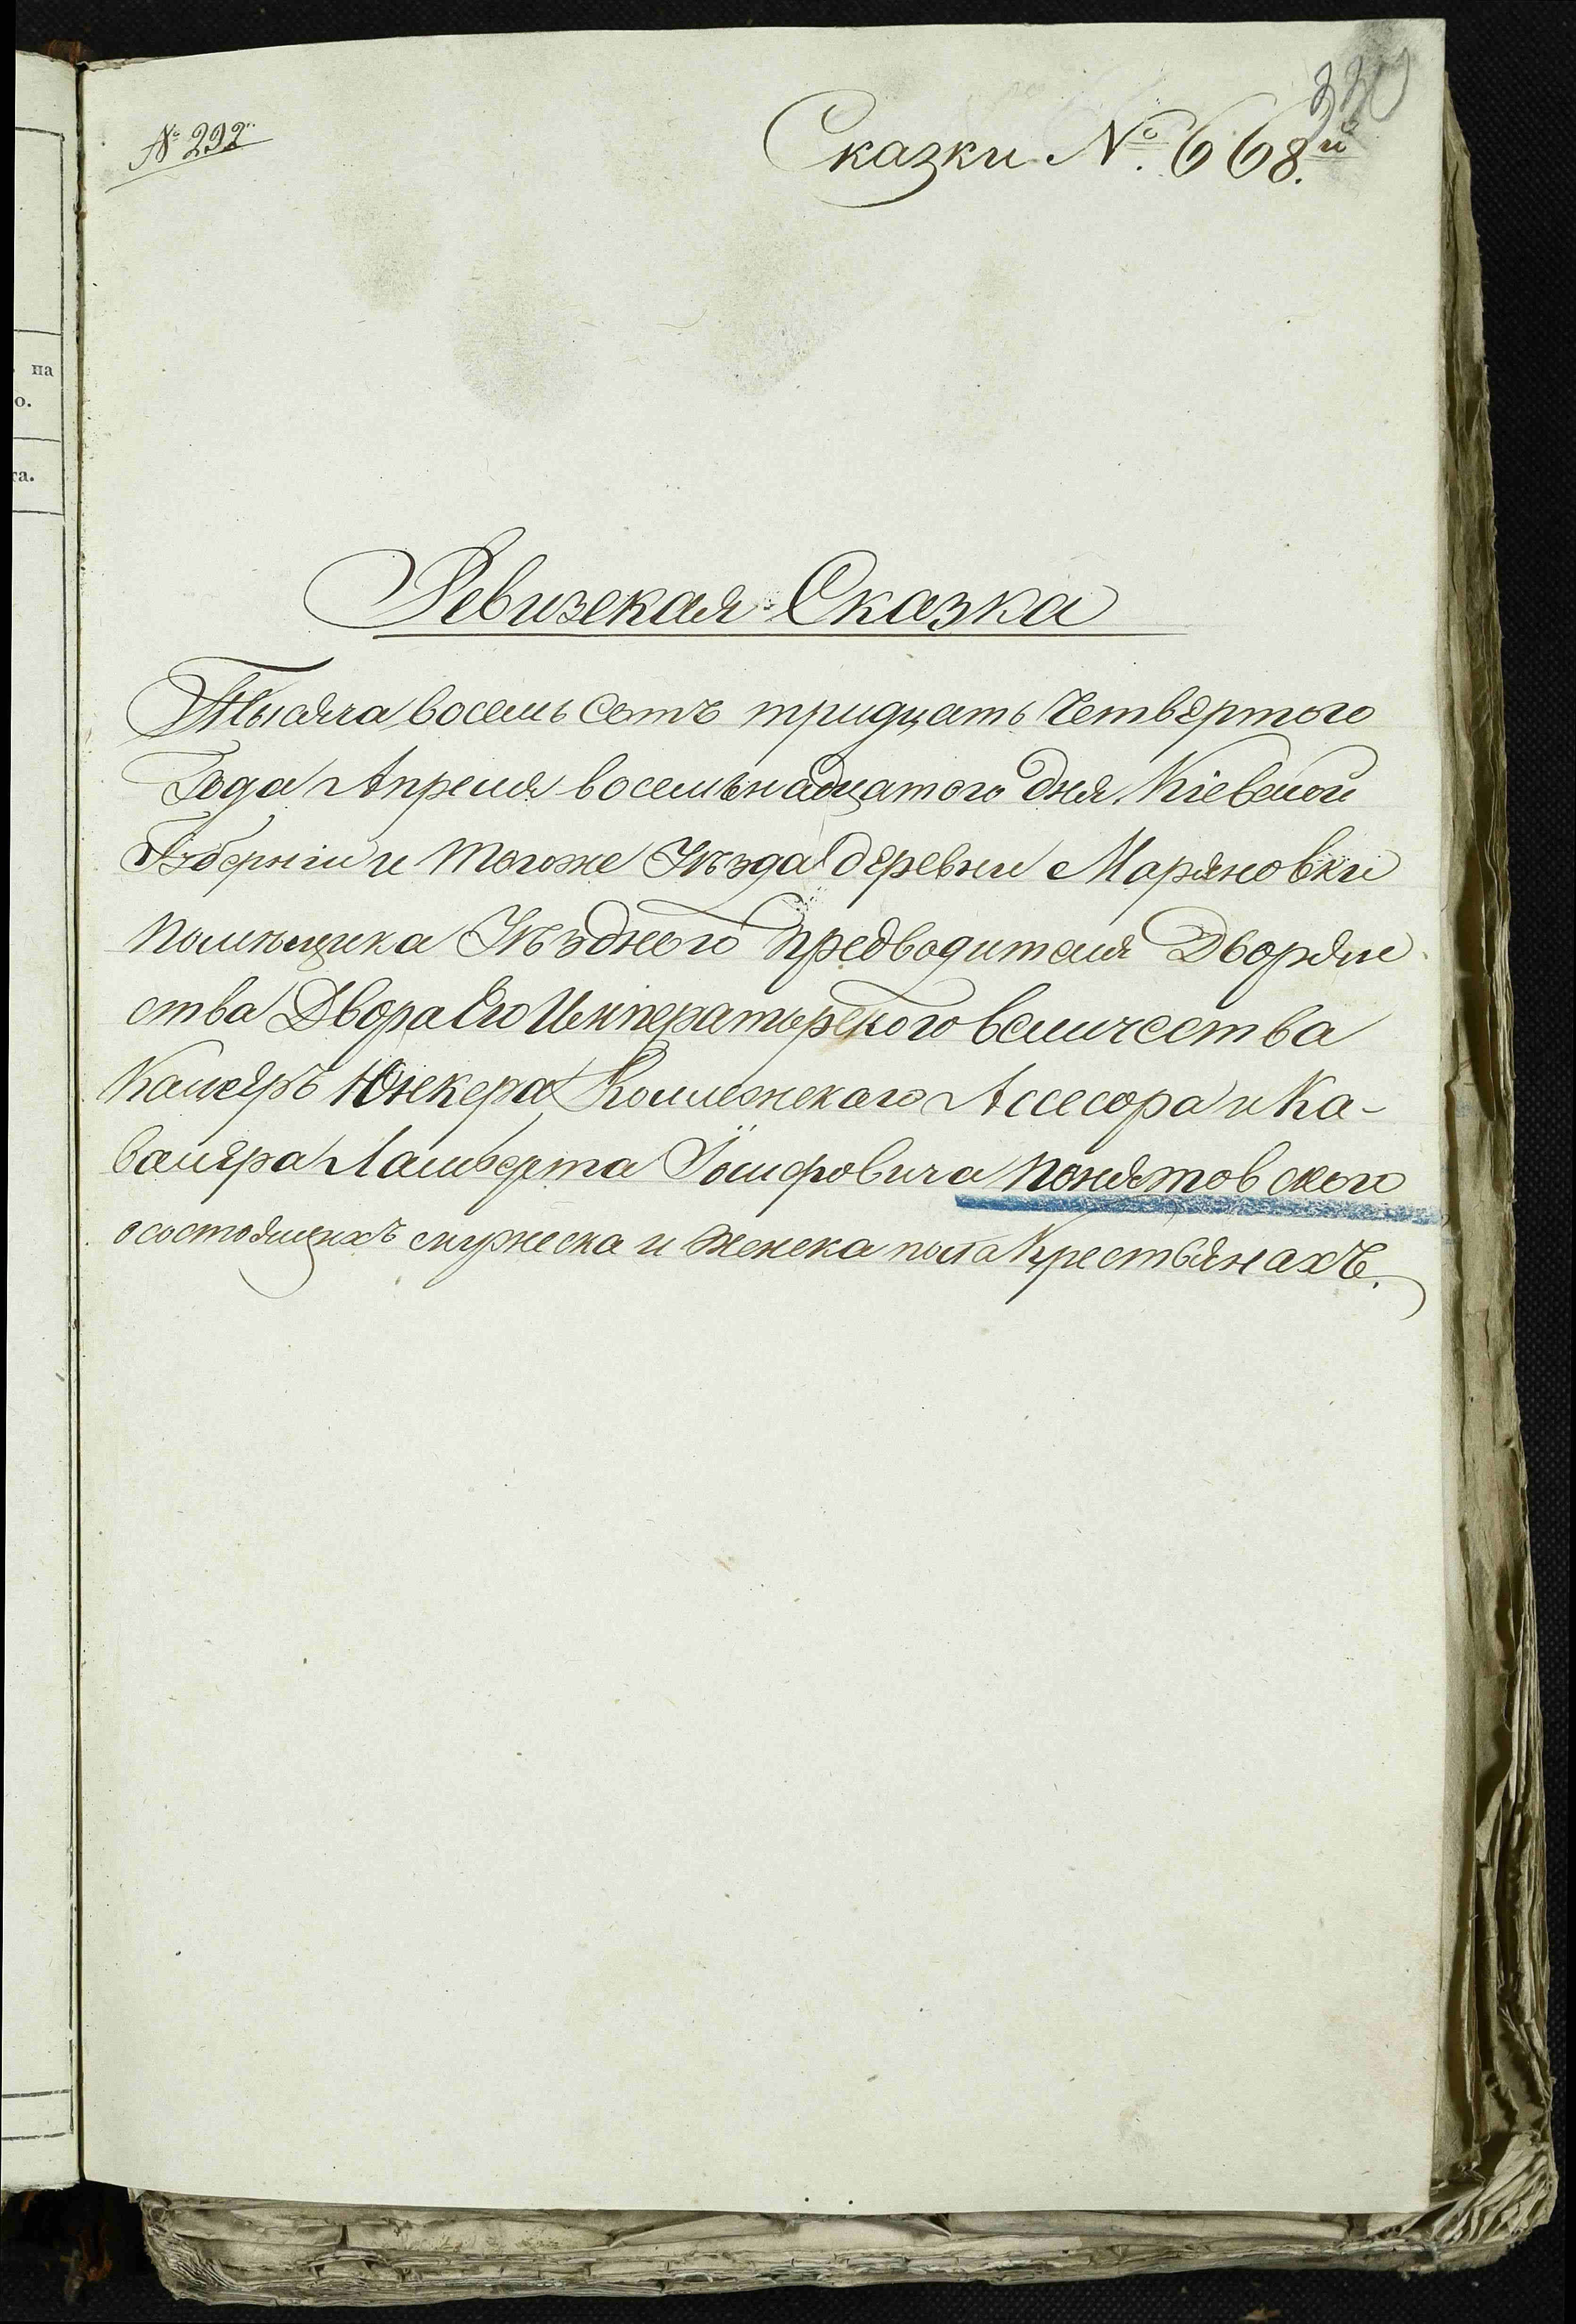 330
№ 292
Сказки № 668.й
на
о.
та.
Ревизская Сказка
Тысяча восемь Сотъ тридцать Четвертого
Года Апреля восемьнадцатого дня. Кіевской
Губерніи и тогоже Уезда деревни Маряновки
помещика Уездного предводителя Дворян
ства Двора Его Императорского величества
Камеръ Юнкера Коллежскаго Ассесора и Ка-
валера Ламберта Іосифовича Понятовского
о состоящихъ мужеска и женска пола Крестьянахъ.